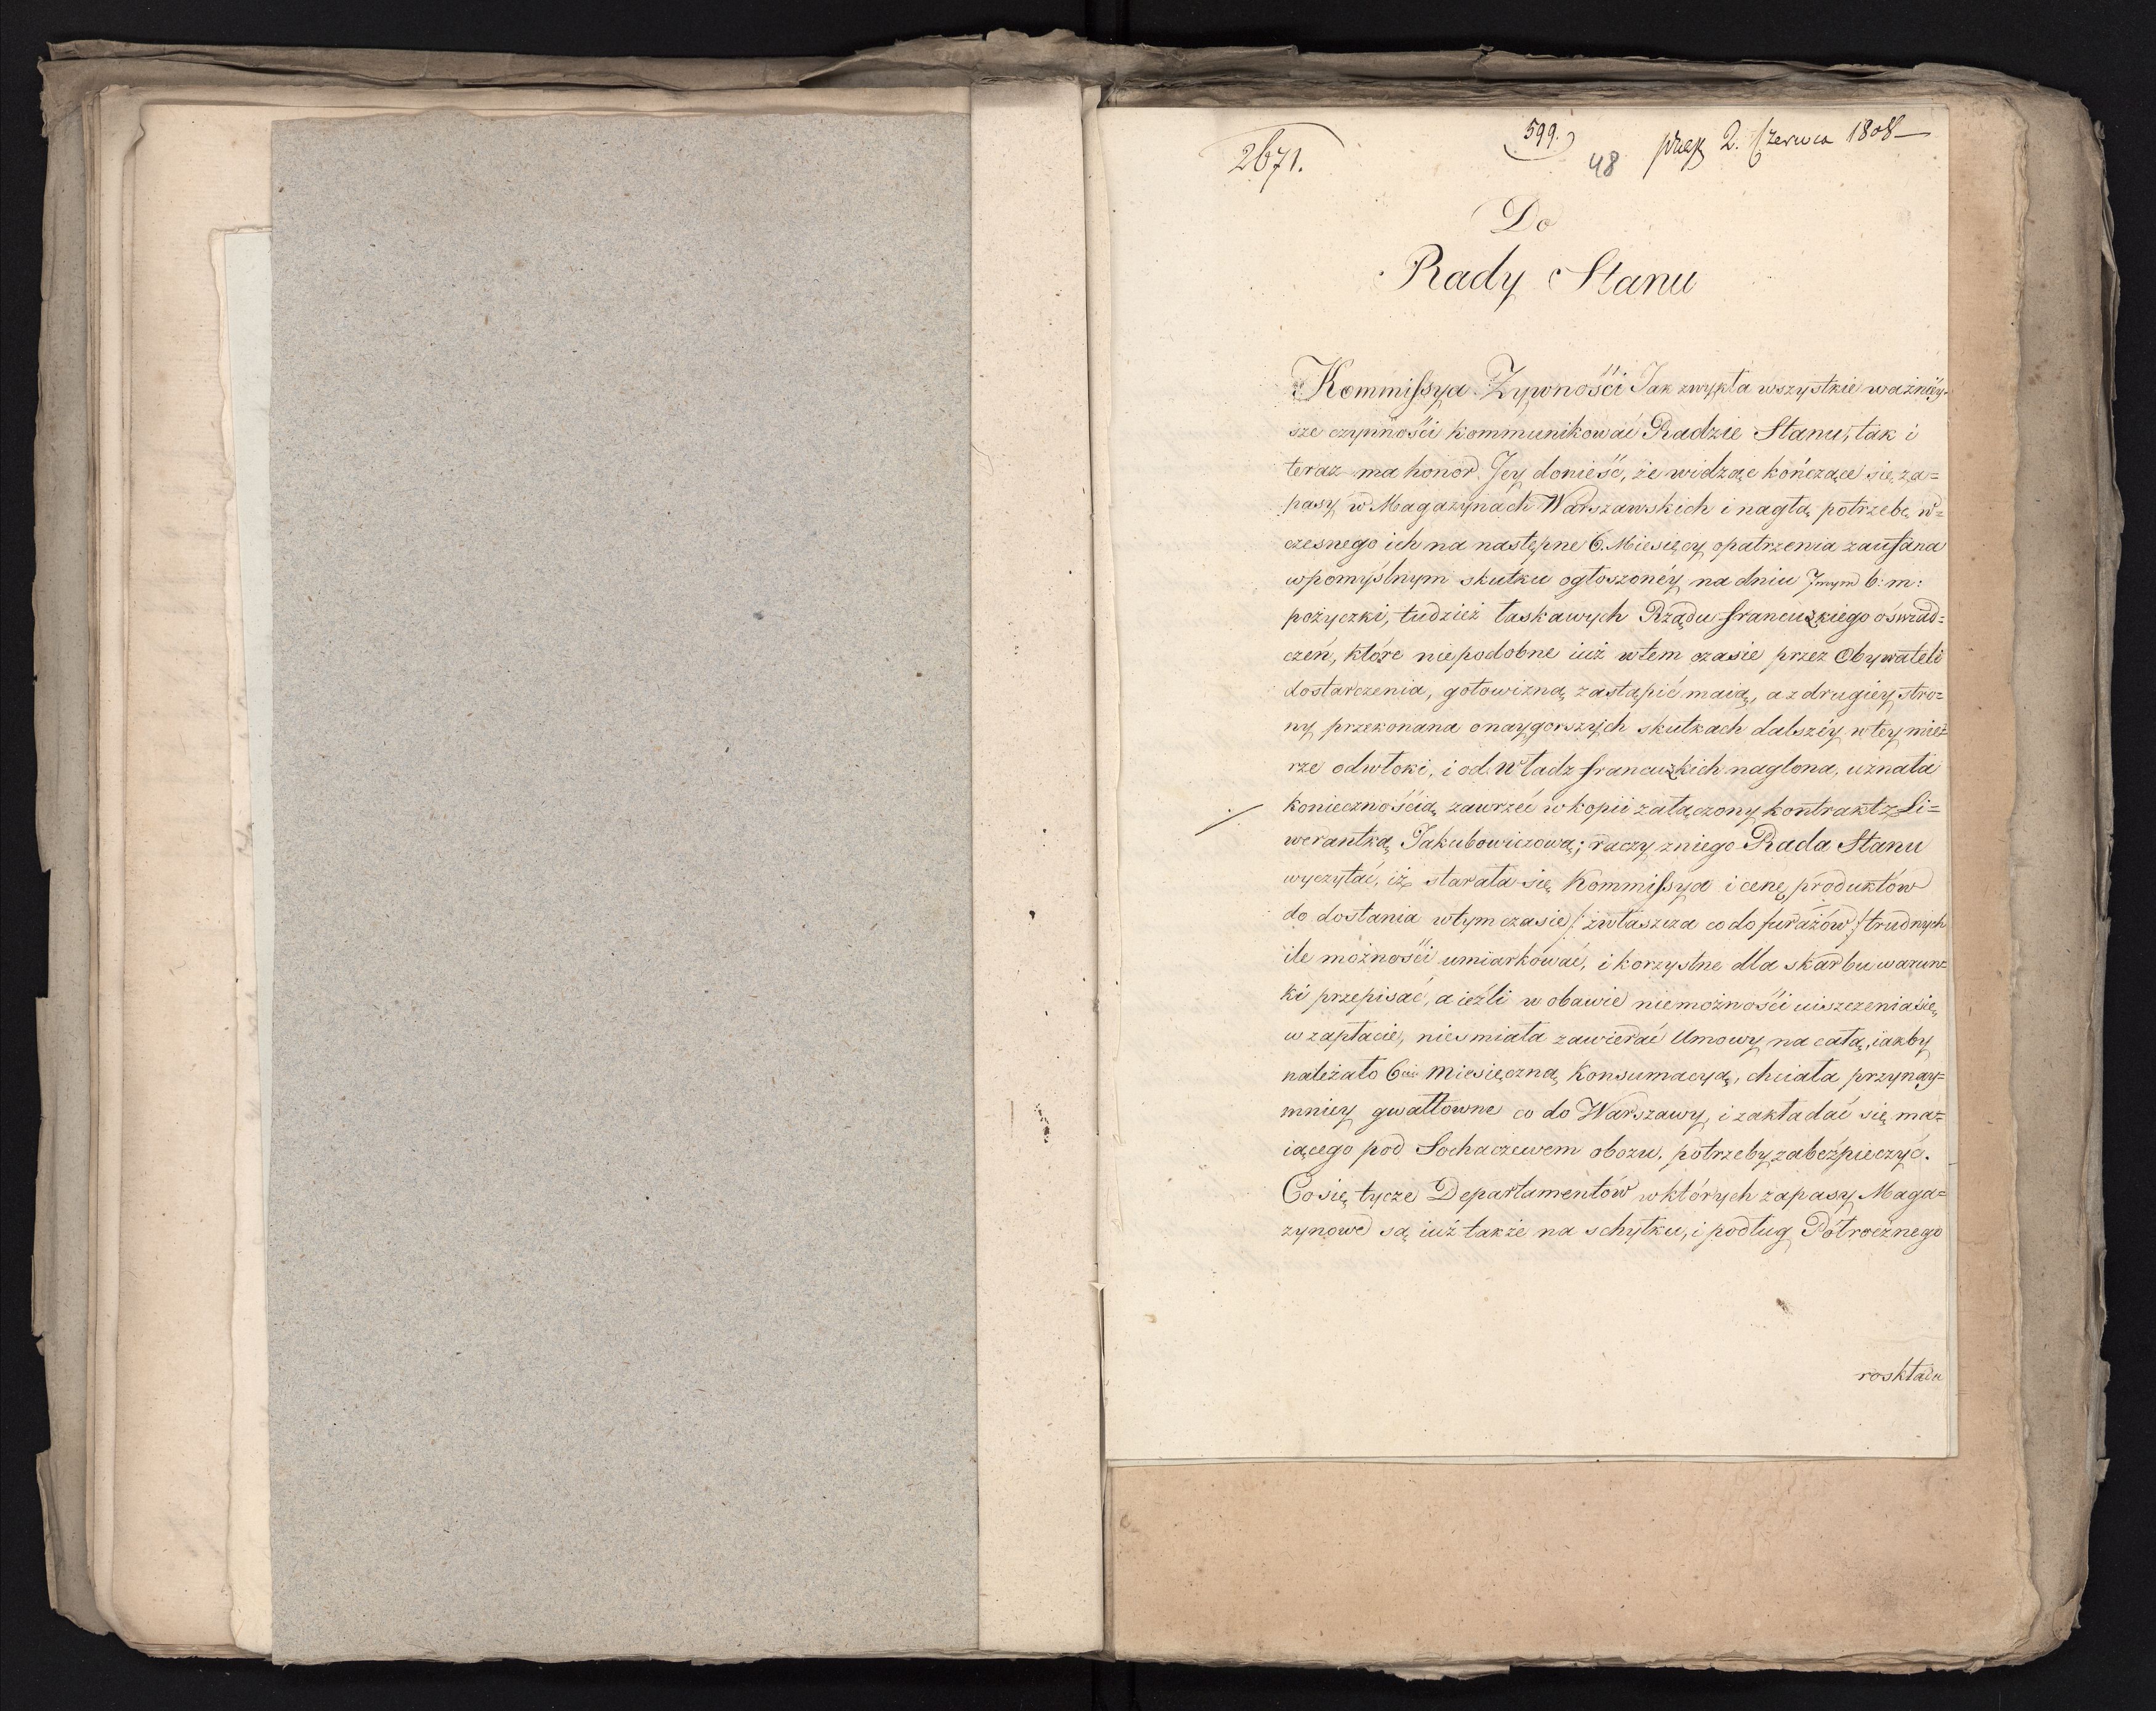 2671.
599.
48
præs 2. Czerwca 1808
Do
Rady Stanu
Kommissya Zywności Jak zwykła wszystkie ważniéy-
sze czynności kommunikować Radzie Stanu, tak i
teraz ma honor Jey donieść, że widząc kończące się za=
pasy w Magazynach Warszawskich i nagłą potrzebę w=
czesnego ich na następne 6. Miesięcy opatrzenia zaufana
w pomyślnym skutku ogłoszonéy na dniu 7mym b: m:
pożyczki, tudzież łaskawych Rządu francuzkiego oświad=
czeń, które niepodobne iuż w tem czasie przez Obywateli
dostarczenia, gotowizną zastąpić maią, a z drugiey stro=
ny przekonana o naygorszych skutkach dalszéy w tey mie=
rze odwłoki, i od Władz francuzkich naglona, uznała
koniecznością zawrzeć w kopii załączony kontrakt z Li=
werantką Jakubowiczową; raczy z niego Rada Stanu
wyczytać, iż starała się Kommissya i cenę produktów
do dostania w tym czasie /: zwłaszcza co do furażów :/ trudnych
ile możności umiarkować, i korzystne dla skarbu warun=
ki przepisać, a ieźli w obawie niemożności uiszczenia się
w zapłacie, nieśmiała zawierać Umowy na całą, iakby
należało 6cio Miesięczną Konsumacyą, chciała przynay=
mniey gwałtowne co do Warszawy, i zakładać się ma=
iącego pod Sochaczewem obozu, potrzeby zabezpieczyć.
Co się tycze Departamentów w których zapasy Maga=
zynowe są iuż także na schyłku, i podług Półrocznego
roskładu